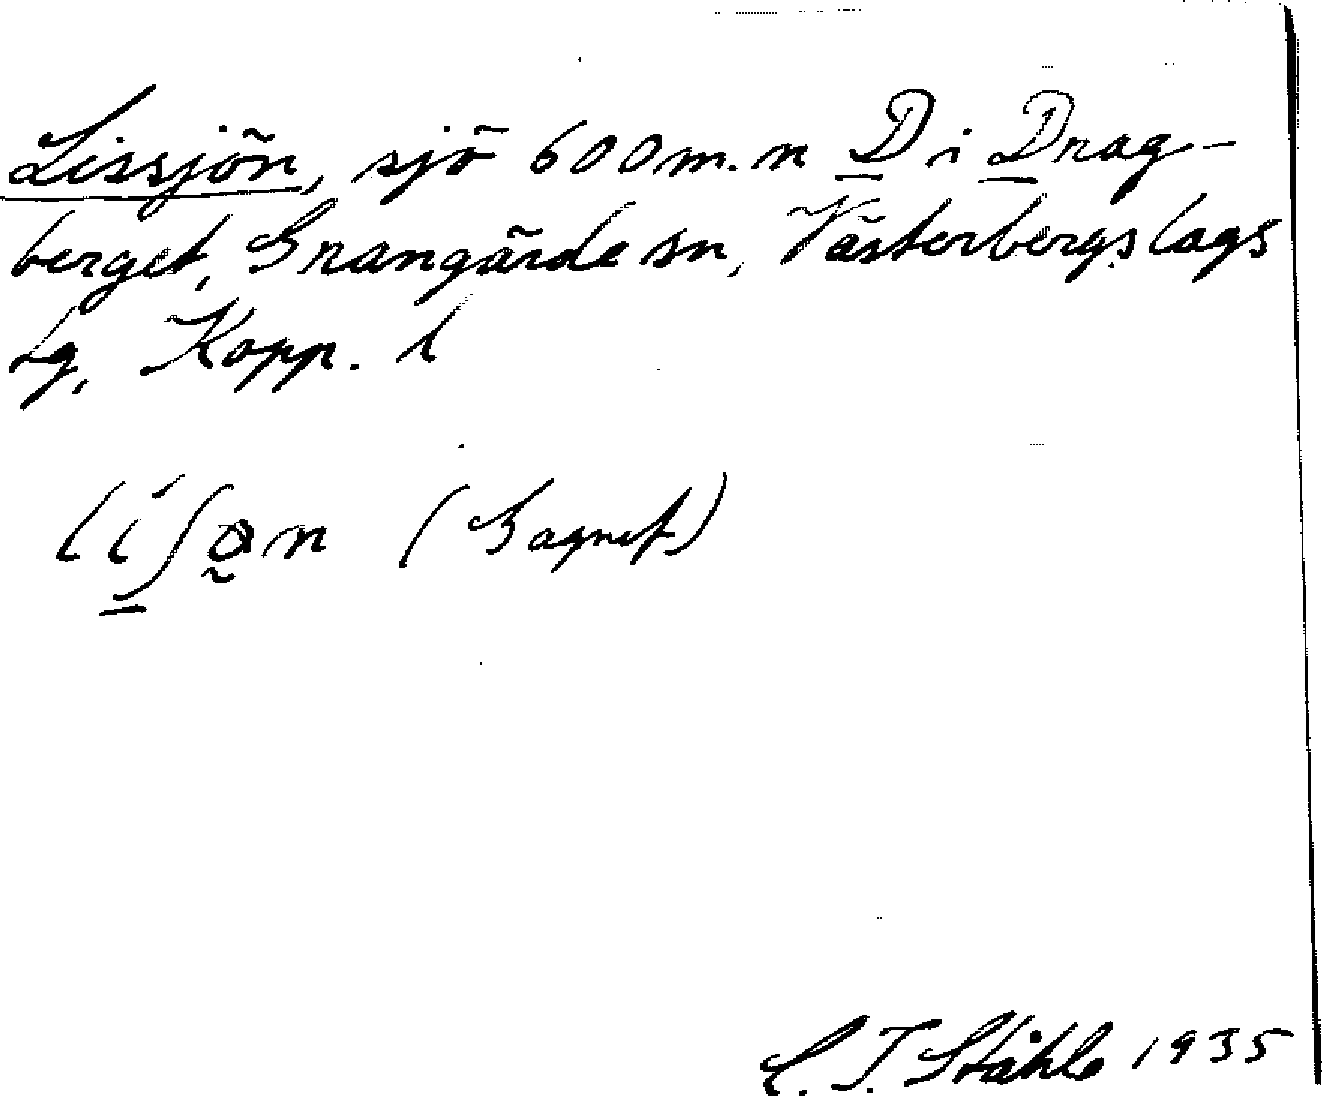 Lissjön, sjö 600 m. n D i Drag-
berget, Grangärde sn, Västerbergslags
dg, Kopp. l
(Bagnet)
C. I. Ståhle 1935